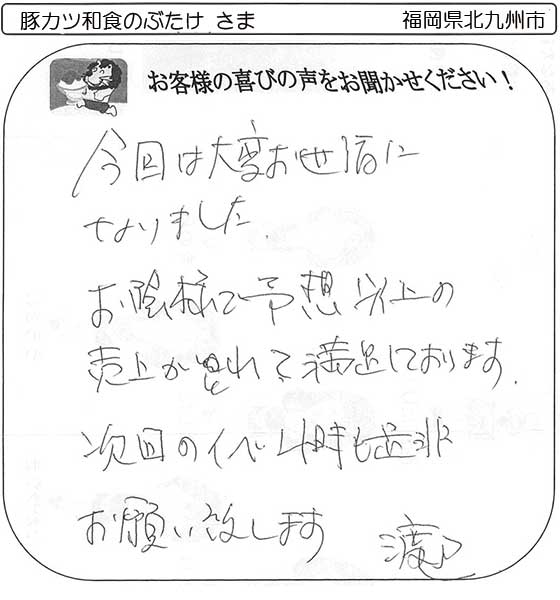 豚カツ和食のぶたけ さま 福岡県北九州市
お客様の喜びの声をお聞かせください！
今回は大変お世話に
なりました.
お陰様で予想以上の
売上がとれて満足しております.
次回のイベント時も是非
お願い致します 渡辺